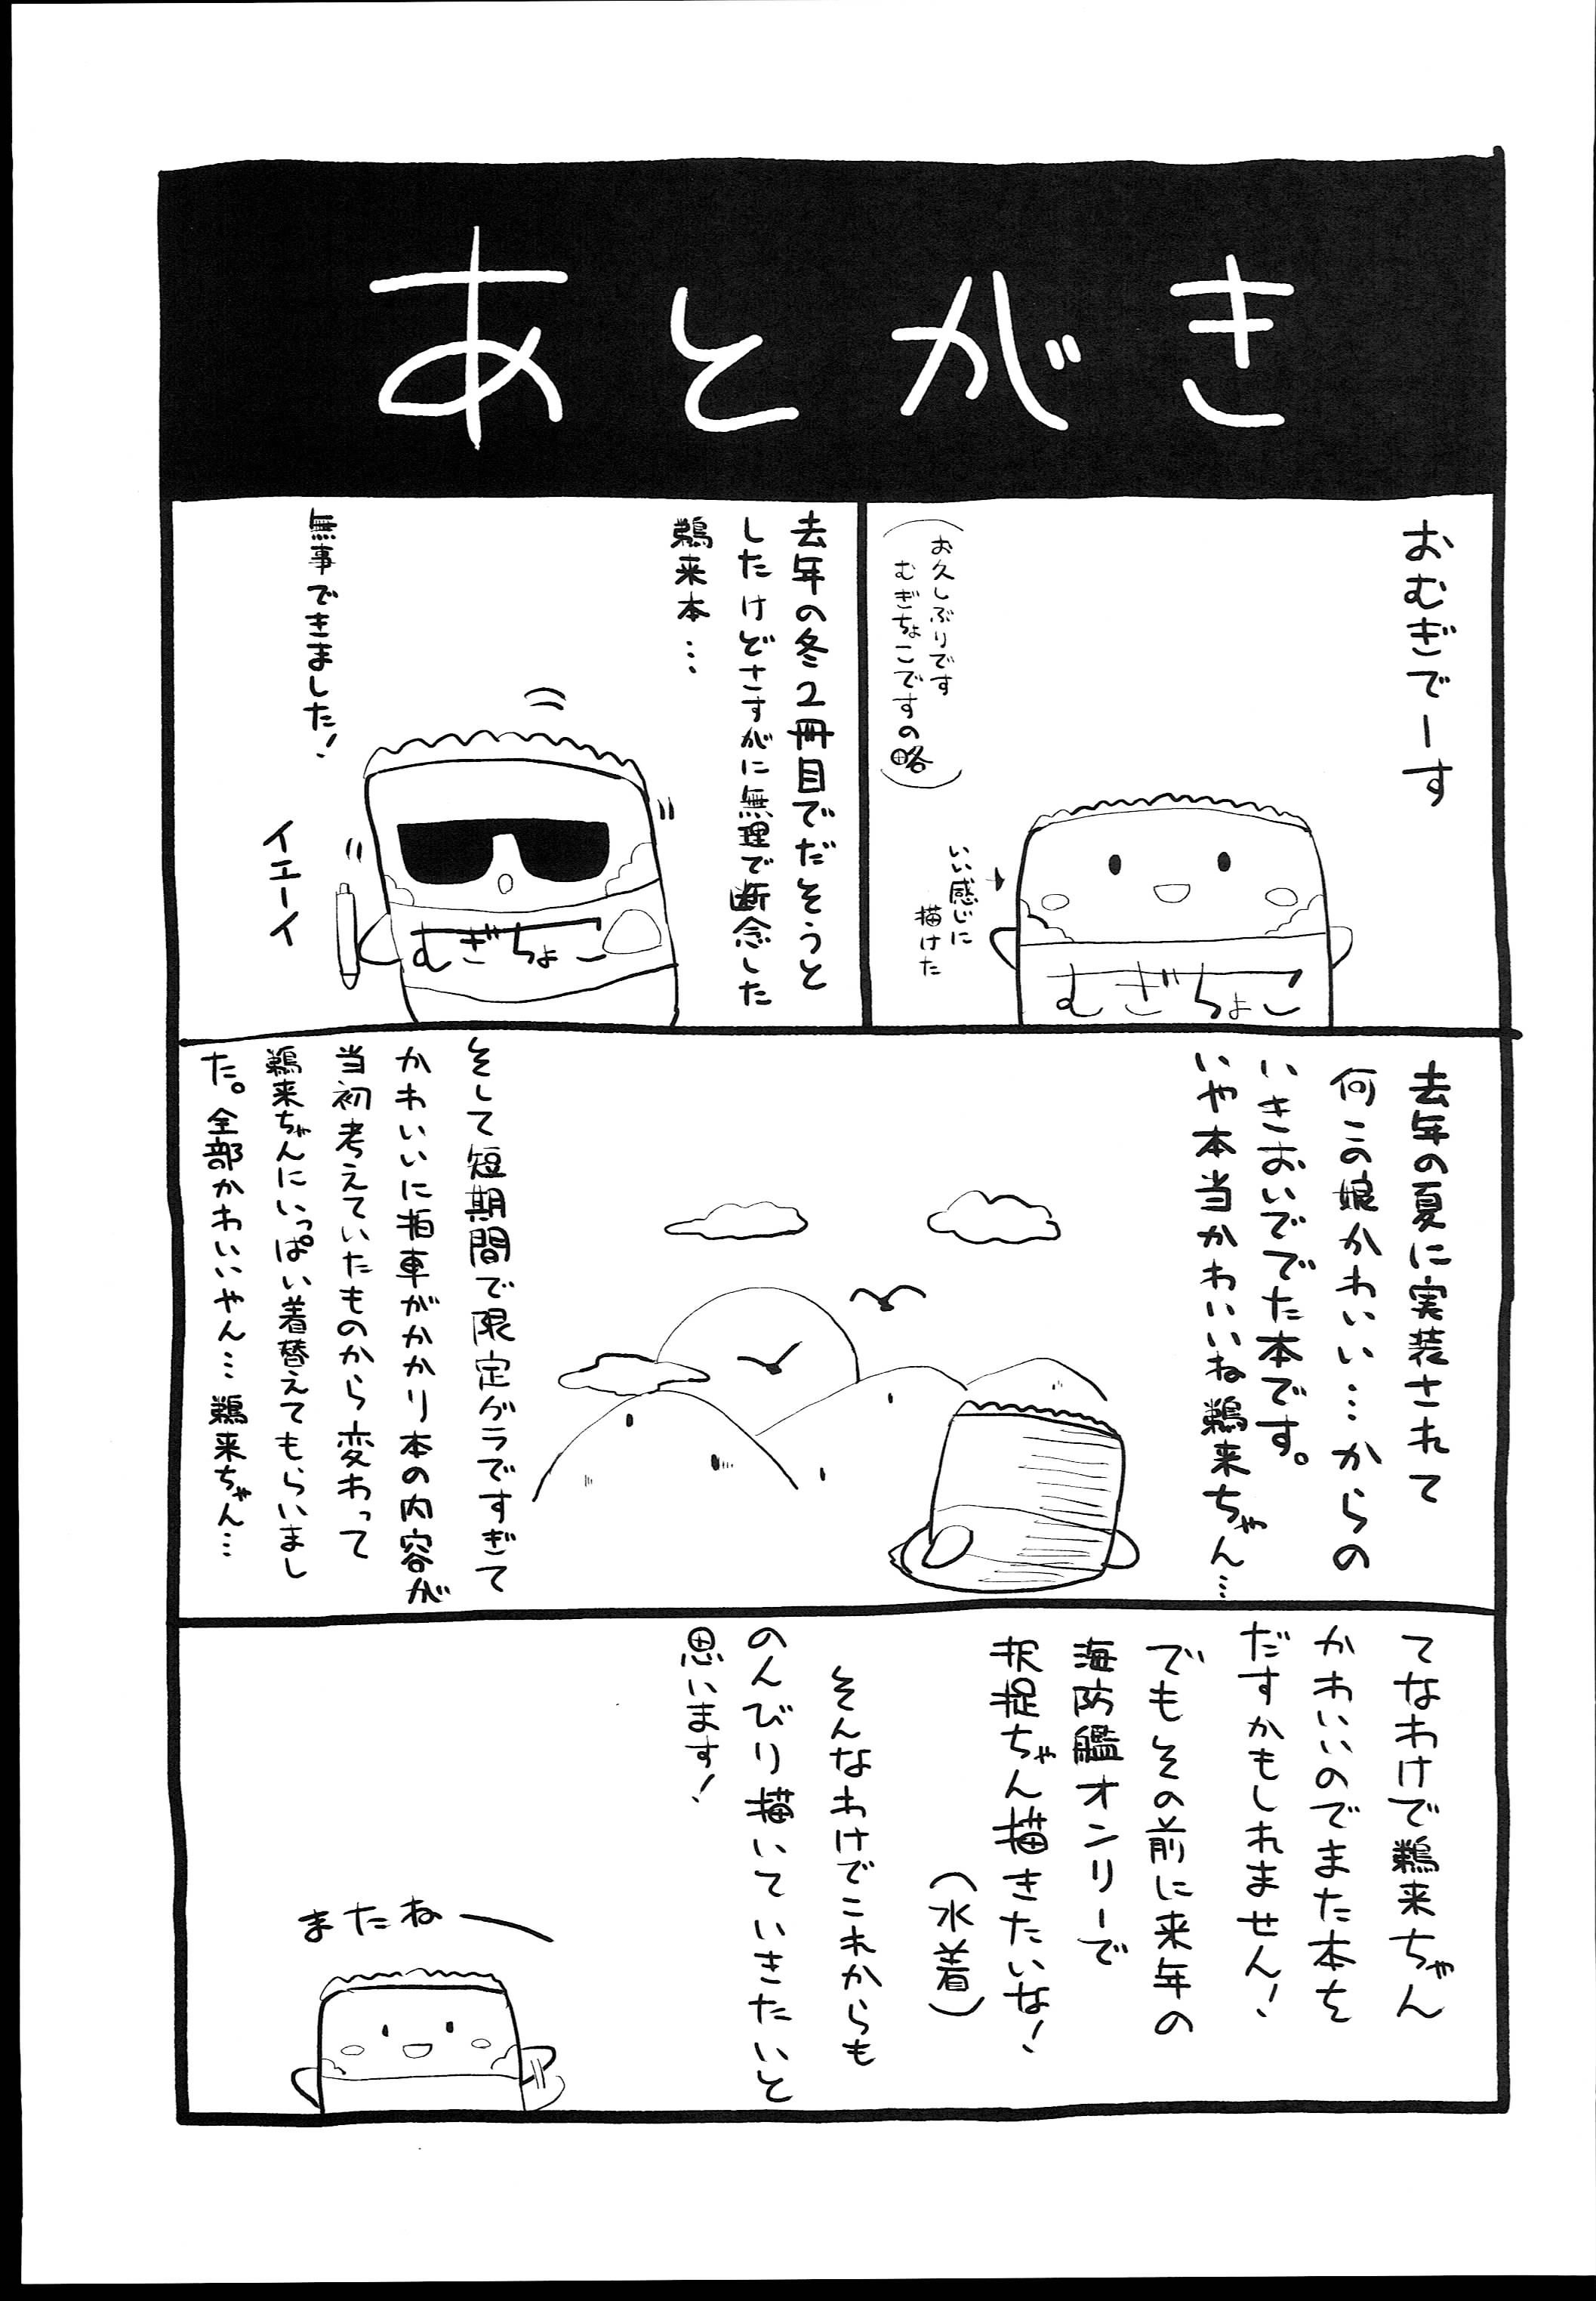 あとがき
おむぎでーす
（お久しぶりです
むぎちょこですの略）
いい感じに
描けた
むぎちょこ
去年の冬2冊目でだそうと
したけどさすがに無理で断念した
鵜来本…
無事できました！
イエーイ
むぎちょこ
去年の夏に実装されて
何この娘かわいい…からの
いきおいででた本です。
いや本当かわいいね鵜来ちゃん…
そして短期間で限定グラですぎて
かわいいに拍車がかかり本の内容が
当初考えていたものから変わって
鵜来ちゃんにいっぱい着替えてもらいまし
た。全部かわいいやん…鵜来ちゃん…
てなわけで鵜来ちゃん
かわいいのでまた本を
だすかもしれません！
でもその前に来年の
海防艦オンリーで
択捉ちゃん描きたいな！
（水着）
そんなわけでこれからも
のんびり描いていきたいと
思います！
またねー